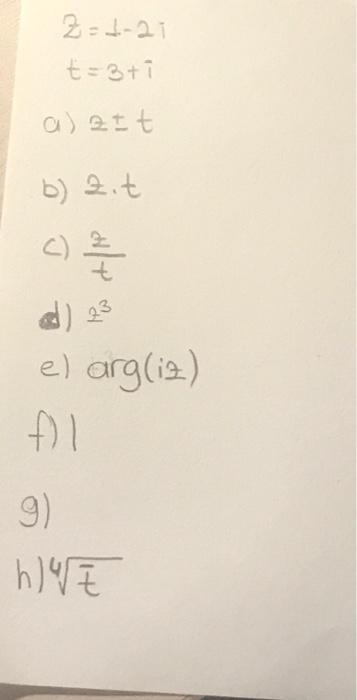 z = 1 - 2i
t = 3 + i
a) z ± t
b) z . t
c) z/t
d) z³
e) arg(iz)
f) |
g)
h) ⁴√t̄